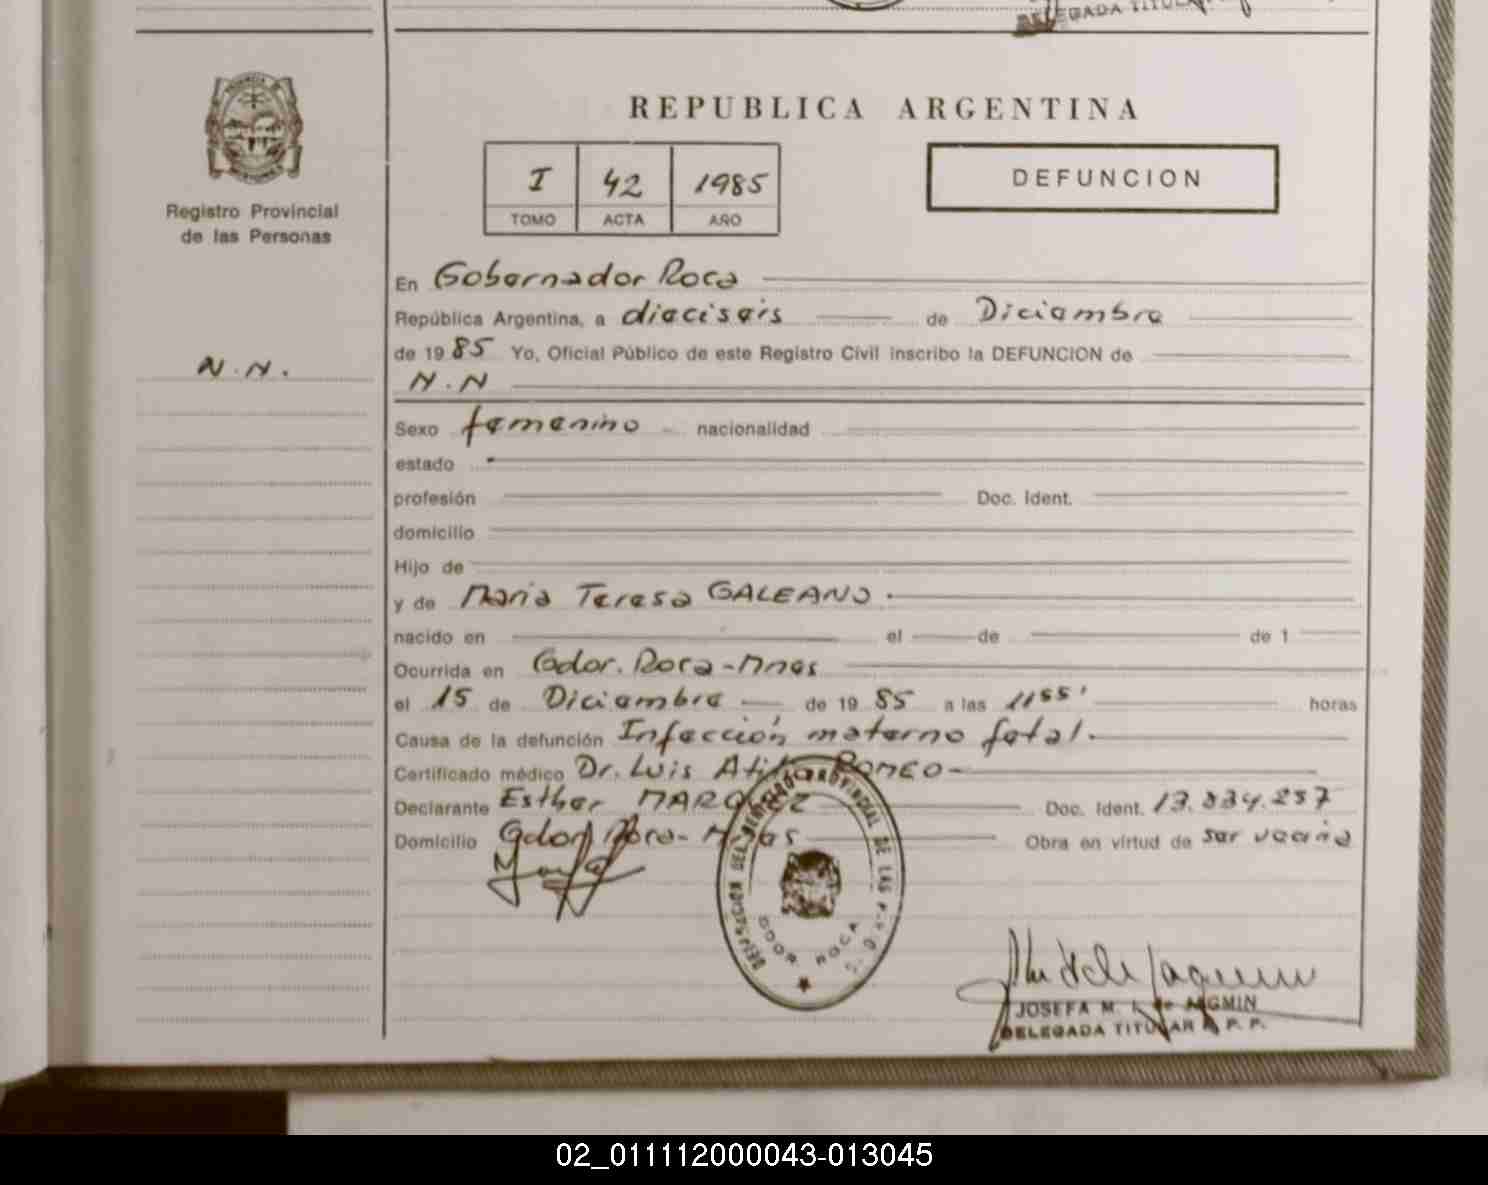 DELEGADA TITULAR
REPUBLICA ARGENTINA
I 42 1985
TOMO ACTA AÑO
DEFUNCION
Registro Provincial
de las Personas
N.N.
En Gobernador Roca
República Argentina, a dieciseis de Diciembre
de 1985 Yo, Oficial Público de este Registro Civil inscribo la DEFUNCION de
N.N
Sexo femenino nacionalidad
estado
profesión Doc. Ident.
domicilio
Hijo de
y de Maria Teresa GALEANO.
nacido en el de de 1
Ocurrida en Gdor. Roca-Mnes
el 15 de Diciembre de 1985 a las 11 55' horas
Causa de la defunción Infección materno fetal.
Certificado médico Dr. Luis Atilio ROMEO-
Declarante Esther MARQUEZ Doc. Ident. 13.334.257
Domicilio Gdor. Roca- Mnes Obra en virtud de ser vecina
DELEGACION DEL REGISTRO PROVINCIAL DE LAS
GDOR ROCA
JOSEFA M. de
DELEGADA TITULAR R. P. P.
02_011112000043-013045